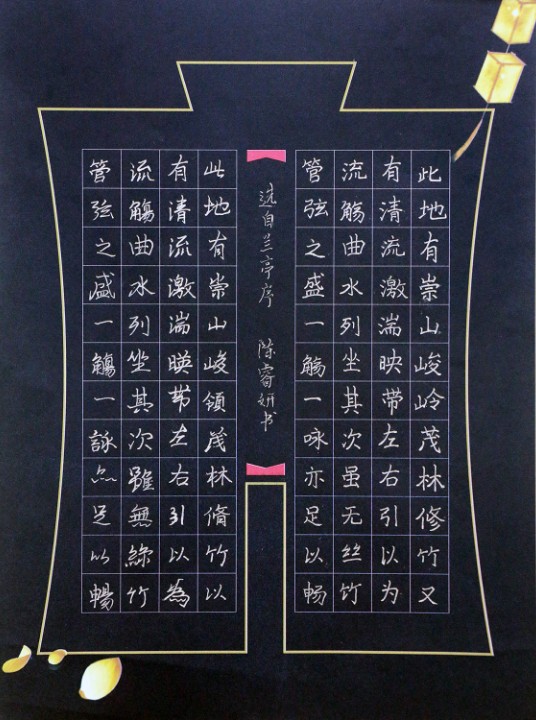 此地有崇山峻岭茂林修竹又
有清流激湍映带左右引以为
流觞曲水列坐其次虽无丝竹
管弦之盛一觞一咏亦足以畅
选自兰亭序 陈睿妍书
此地有崇山峻領茂林脩竹以
有清流激湍暎帶左右引以為
流觴曲水列坐其次雖無絲竹
管弦之盛一觴一詠亦足以暢